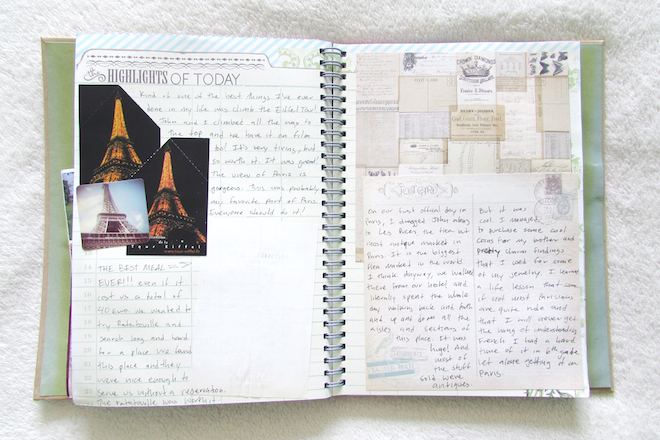 the HIGHLIGHTS OF TODAY
Kind of one of the best things I've ever
done in my life was climb the Eiffel Tower!
John and I climbed all the way to
the top and we have it on film
too! It's very tiring, but
so worth it. It was great
The view of Paris is
gorgeous. This was probably
my favorite part of Paris.
Everyone should do it!
Tour Eiffel
THE BEST MEAL
EVER!!! even if it
cost us a total of
40 Euro we wanted to
try Ratatouille and
search long and hard
for a place. We found
this place and they
were nice enough to
serve us without a reservation.
The ratatouille was worth it!
CROWN DIAMONDS
On our first official day in
Paris, I dragged John along
to Les Puces the flea and
most antique market in
Paris. It is the biggest
flea market in the world
I think. Anyway, we walked
there from our hotel and
literally spent the whole
day walking back and forth
and up and down all the
aisles and sections of
this place. It was
huge! And
most of
the stuff
sold were
antiques.
But it was
cool. I managed
to purchase some cool
coins for my mother and
pretty charm findings
that I used for some
of my jewelry. I learned
a life lesson that some
if not most Parisians
are quite rude and
that I will never get
the hang of understanding
French. I had a hard
time of it in 6th grade
let alone getting it in
Paris.